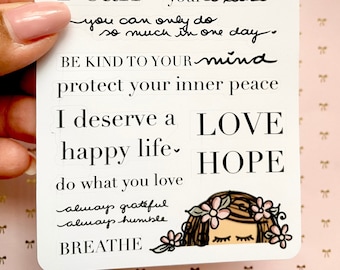 you can only do
so much in one day.
BE KIND TO YOUR mind
protect your inner peace
I deserve a
happy life
do what you love
always grateful
always humble
BREATHE
LOVE
HOPE